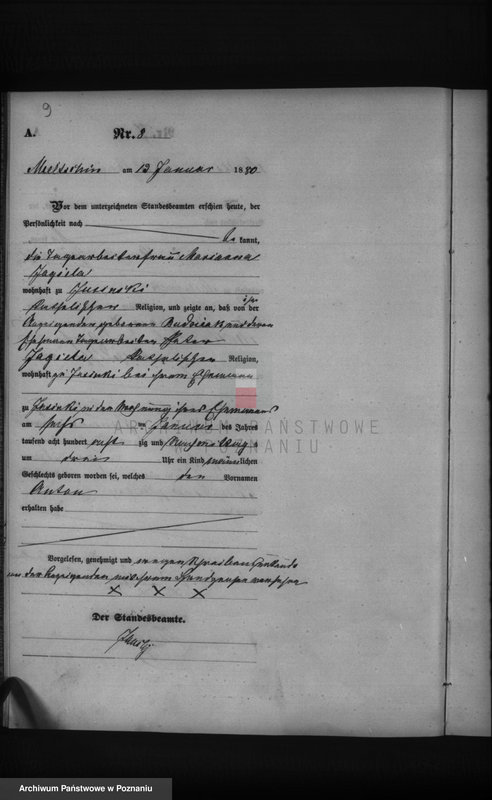 9
A.
Nr. 8
am 13 Januar 1880
Vor dem unterzeichneten Standesbeamten erschien heute, der
Persönlichkeit nach
be kannt,
die Tagearbeiterfrau Marianna
Jagiela
wohnhaft zu
katholischer Religion, und zeigte an, daß von der
ihr
Anzeigenden geborene und deren
Ehemann Tagearbeiter Peter
Jagiela katholischer Religion,
wohnhaft zu bei ihrem Ehemann
zu in der Wohnung ihres Ehemanns
am sechs Januar des Jahres
tausend acht hundert acht zig und Nachmittag s
um drei Uhr ein Kind männlichen
Geschlechts geboren worden sei, welches den Vornamen
Anton
erhalten habe
Vorgelesen, genehmigt und wegen Schreibensunkunde
von der Anzeigenden mit ihrem Handzeichen versehen
X X X
Der Standesbeamte.
ARCHIWUM PAŃSTWOWE
W POZNANIU
Archiwum Państwowe w Poznaniu